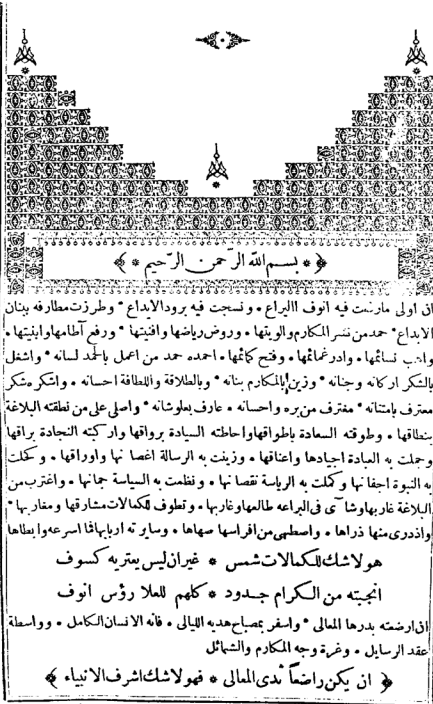 ﴿ * بسم الله الرّحمن الرّحيم * ﴾
ان اولى مارعفت فيه انوف اليراع * ونسجت فيه برود الابداع * وطرزت مطارفه ببنان
الابداع * حمد من نشر المكارم والويتها * وروض رياضها وافنيتها * ورفع آطامها وابنيتها *
واهب نسائمها * وادر غمائمها * وفتح كمائمها * احمده حمد من اعمل بالحمد لسانه * واشغل
بالشكر اركانه وجنانه * وزين بالمكارم بنانه * وبالطلاقة واللطافة احسانه * واشكره شكر
معترف بامتنانه * مغترف من بره واحسانه * عارف بعلو شانه * واصلى على من نطقته البلاغة
بنطاقها * وطوقته السعادة باطواقها واحاطته السيادة برواقها واركبته النجادة براقها
وحملت به العبادة اجيادها واعناقها * وزينت به الرسالة اغصانها واوراقها * وكحلت
به النبوة اجفانها وكملت به الرياسة نقصانها * ونظمت به السياسة جمانها * واغترب من
البلاغة غاربها وشآى فى البراعه طالعها وغاربها * وتطوف للكمالات مشارقها ومغاربها *
واذدرى منها ذراها * واصطهى من افراسها صهاها * وسايرته اربابها فما اسرعه وابطاها
هو لاشك للكمالات شمس * غير ان ليس يعتريه كسوف
انجبته من الكرام جدود * كلهم للعلا رؤس انوف
ان ارضعته بدرها المعالى * واسفر بمصباح هديه الليالى * فانه الانسان الكامل * وواسطة
عقد الرسايل * وغرة وجه المكارم والشمائل
﴿ ان يكن راضعاً ثدى المعالى * فهو لاشك اشرف الانبياء ﴾